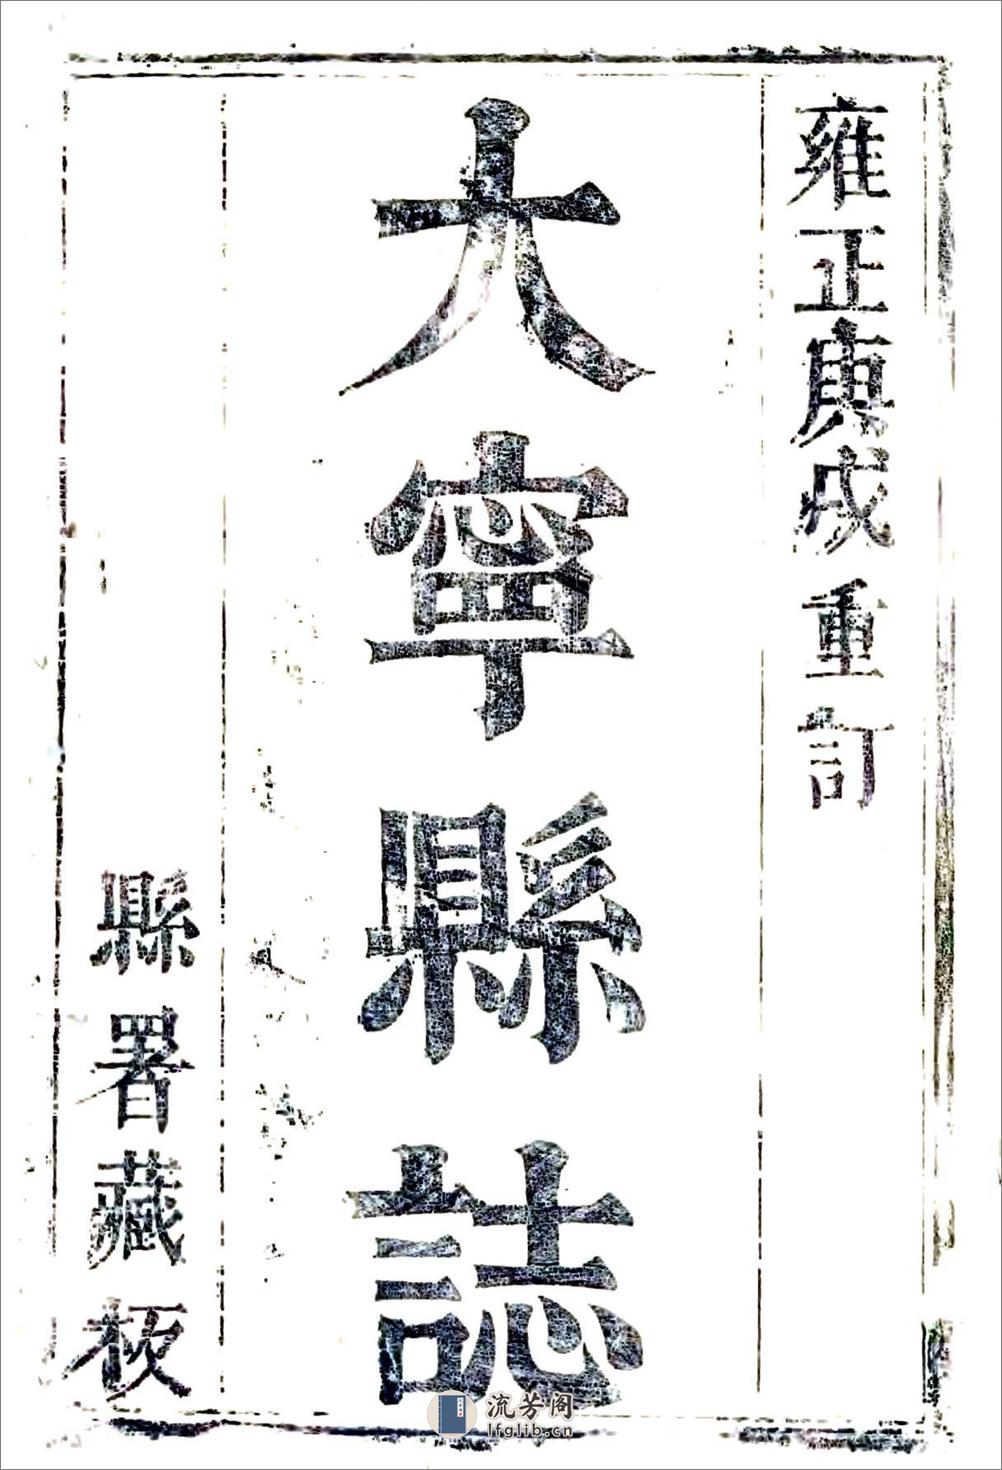 雍正庚戌重訂
大寧縣誌
縣署藏板
流芳阁
lfglib.cn